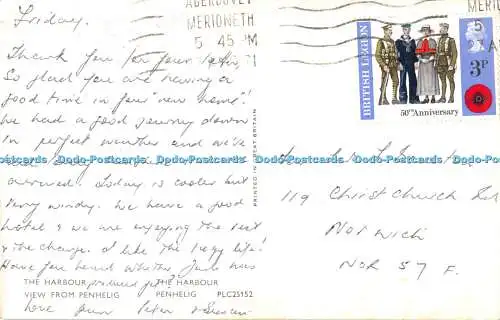 Friday.
Thank you for your letter,
So glad you are having a
good time in your "new home"!
We had a good journey down
in perfect weather and we've
had
arrived. Today is cooler but
very windy. We have a good
hotel & we are enjoying the rest
& the change. I like the lazy life!
Have you heard whether Jack was
love from Peter &
THE HARBOUR
VIEW FROM PENHELIG
THE HARBOUR
PENHELIG PLC25152
PRINTED IN GREAT BRITAIN
ABERDOVEY
MERIONETH
5 45 PM
BRITISH LEGION
50th Anniversary
3P
119 Christchurch Rd
Norwich
NOR 57 F.
Dodo-Postcards Dodo-Postcards Dodo-Postcards Dodo-Postcards